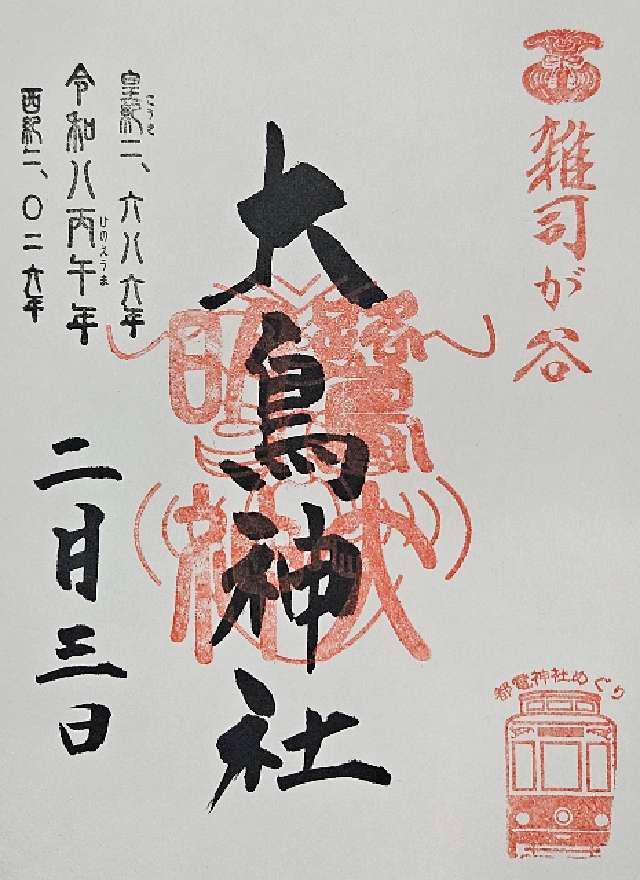 雑司が谷
大鳥神社
皇紀二、六八六年
こうき
令和八丙午年
ひのえうま
西紀二、〇二六年
二月三日
都電神社めぐり